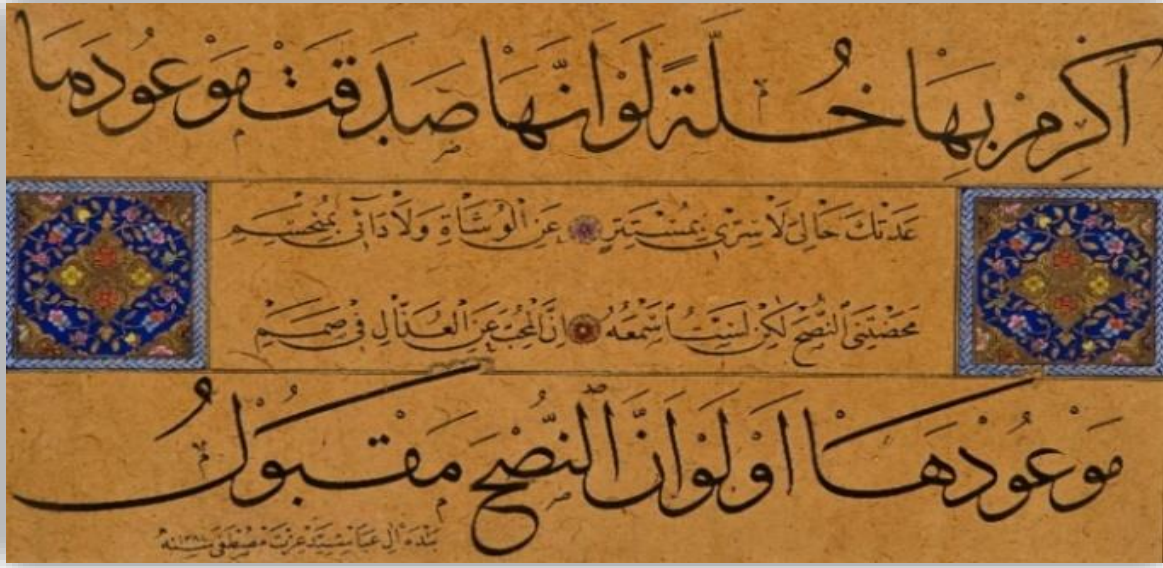 اَكْرِمْ بِهَا خُلَّةً لَوْ اَنَّهَا صَدَقَتْ مَوْعُودَهَا
عَدَتْكَ حَالِىَ لَا سِرّٖى بِمُسْتَتِرٍ عَنِ الْوُشَاةِ وَلَا دَائٖى بِمُنْحَسِمِ
مَحَضْتَنِى النُّصْحَ لٰكِنْ لَسْتُ اَسْمَعُهُ اِنَّ الْمُحِبَّ عَنِ الْعُذَّالِ فٖى صَمَمِ
مَوْعُودَهَا اَوْ لَوْ اَنَّ النُّصْحَ مَقْبُولُ
بنده آل عبا سيد عزت مصطفى